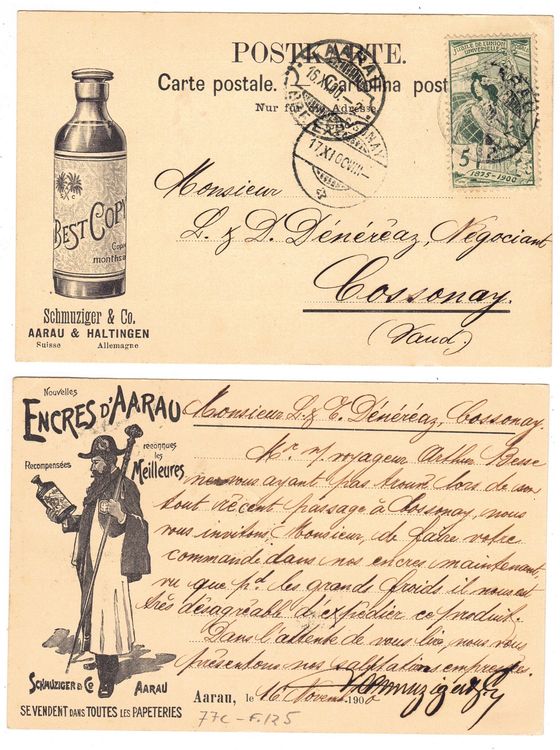 POSTKARTE.
Carte postale. Cartolina post
Nur für die Adresse
JUBILÉ DE L'UNION
UNIVERSELLE
5
1875-1900
AARAU
COSSONAY
17.XI.00.VIII-
BEST COPY
months
Schmuziger & Co.
AARAU & HALTINGEN
Suisse Allemagne
Monsieur
L. & D. Dénéréaz, Négociant
Cossonay.
(Vaud.)
Nouvelles
ENCRES D'AARAU
reconnues
les
Meilleures
Recompensées
SCHMUZIGER & Co AARAU
SE VENDENT DANS TOUTES LES PAPETERIES
Monsieur L. & E. Dénéréaz, Cossonay.
Mr. n/ voyageur Arthur Besse
ne vous ayant pas trouvé lors de son
tout récent passage à Cossonay, nous
vous invitons, Monsieur, de faire votre
commande dans nos encres maintenant,
vu que pd. les grands froids il nous est
très désagréable d'expédier ce produit.
Dans l'attente de vous lire, nous vous
présentons nos salutations empressées.
Aarau, le 16 Novemb. 1900
Schmuziger & Cie
77c - F. 125